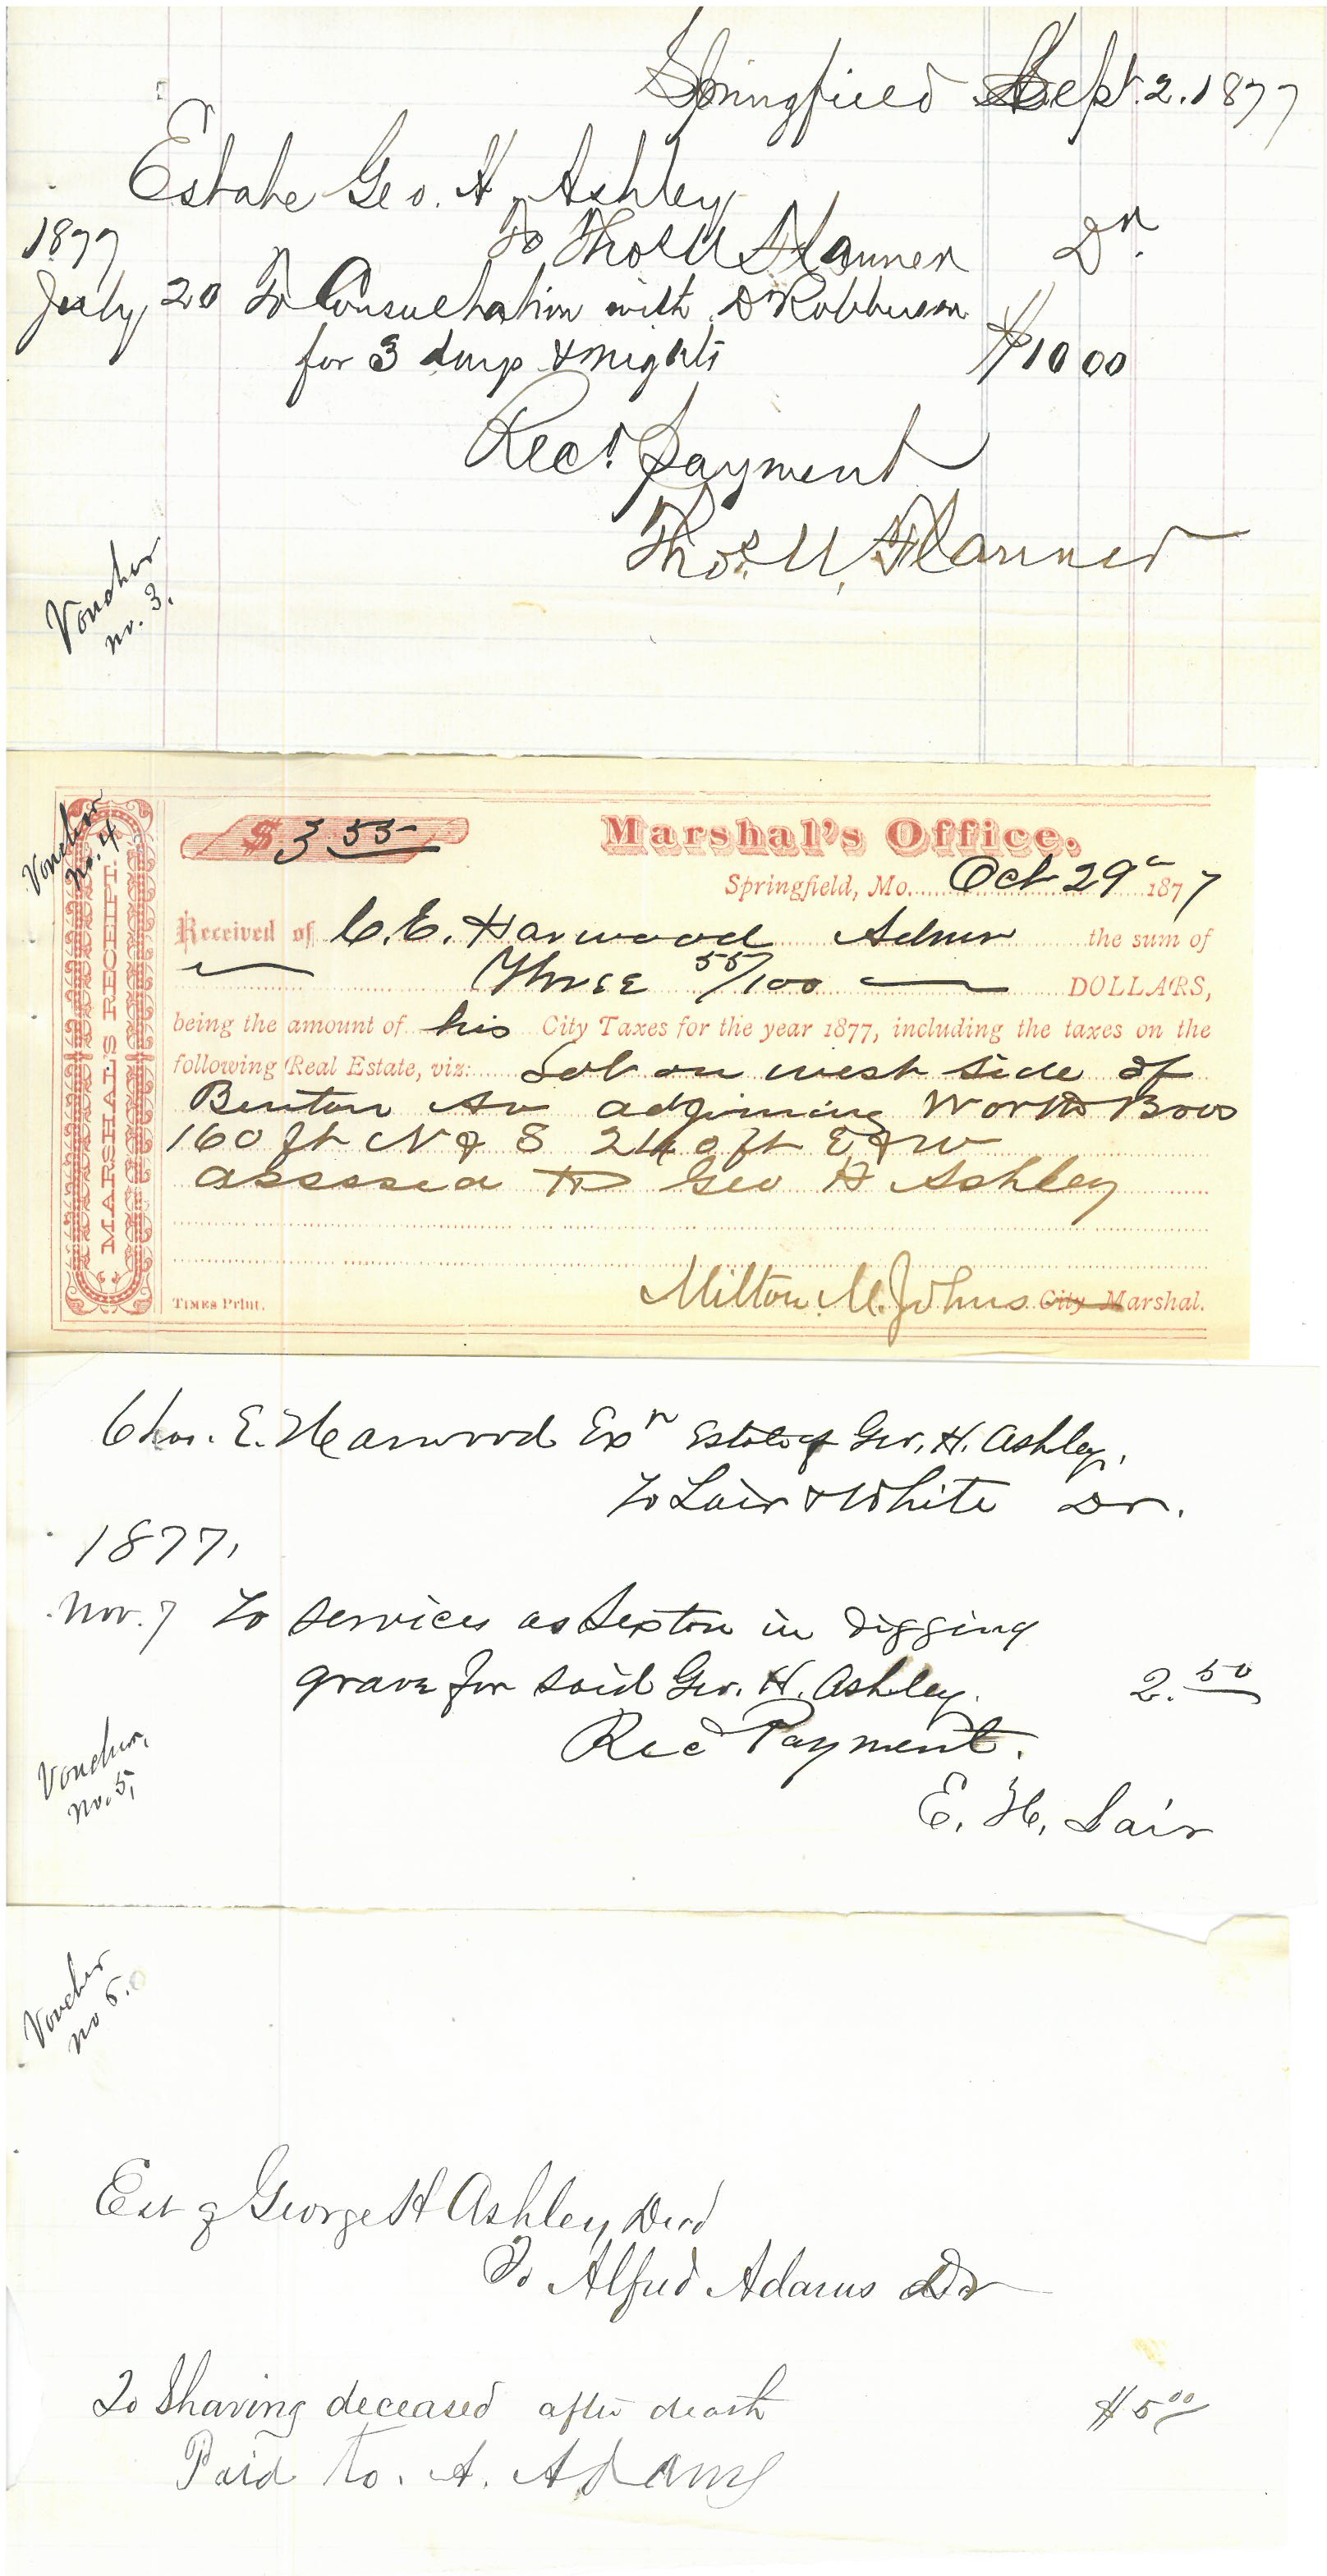 Springfield Sept. 2. 1877
Estate Geo. H. Ashley
To Thos U Flanner Dr.
1877
July 20 To Consultation with Dr Robberson
for 3 days & nights $10 00
Recd. payment
Thos. U. Flanner
Voucher
no. 3.
Voucher
No. 4
MARSHAL'S RECEIPT.
$ 3 55
Marshal's Office.
Springfield, Mo. Oct 29th 1877
Received of C. E. Harwood Admr the sum of
Three 55/100 DOLLARS,
being the amount of his City Taxes for the year 1877, including the taxes on the
following Real Estate, viz: Lot on west side of
Benton Av adjoining Worth Bros
160 ft N & S 240 ft E & W
assessed to Geo H Ashley
Milton M. Johns City Marshal.
TIMES Print.
Chas. E. Harwood Exr Estate of Geo. H. Ashley.
To Lair & White Dr.
1877,
Nov. 7 To services as Sexton in digging
grave for said Geo. H. Ashley. 2.50
Recd Payment.
E. H. Lair
Voucher,
no. 5,
Voucher
no 6.
Est of George H Ashley Decd
To Alfred Adams Dr
To Shaving deceased after death $5 00
Paid to. A. Adams